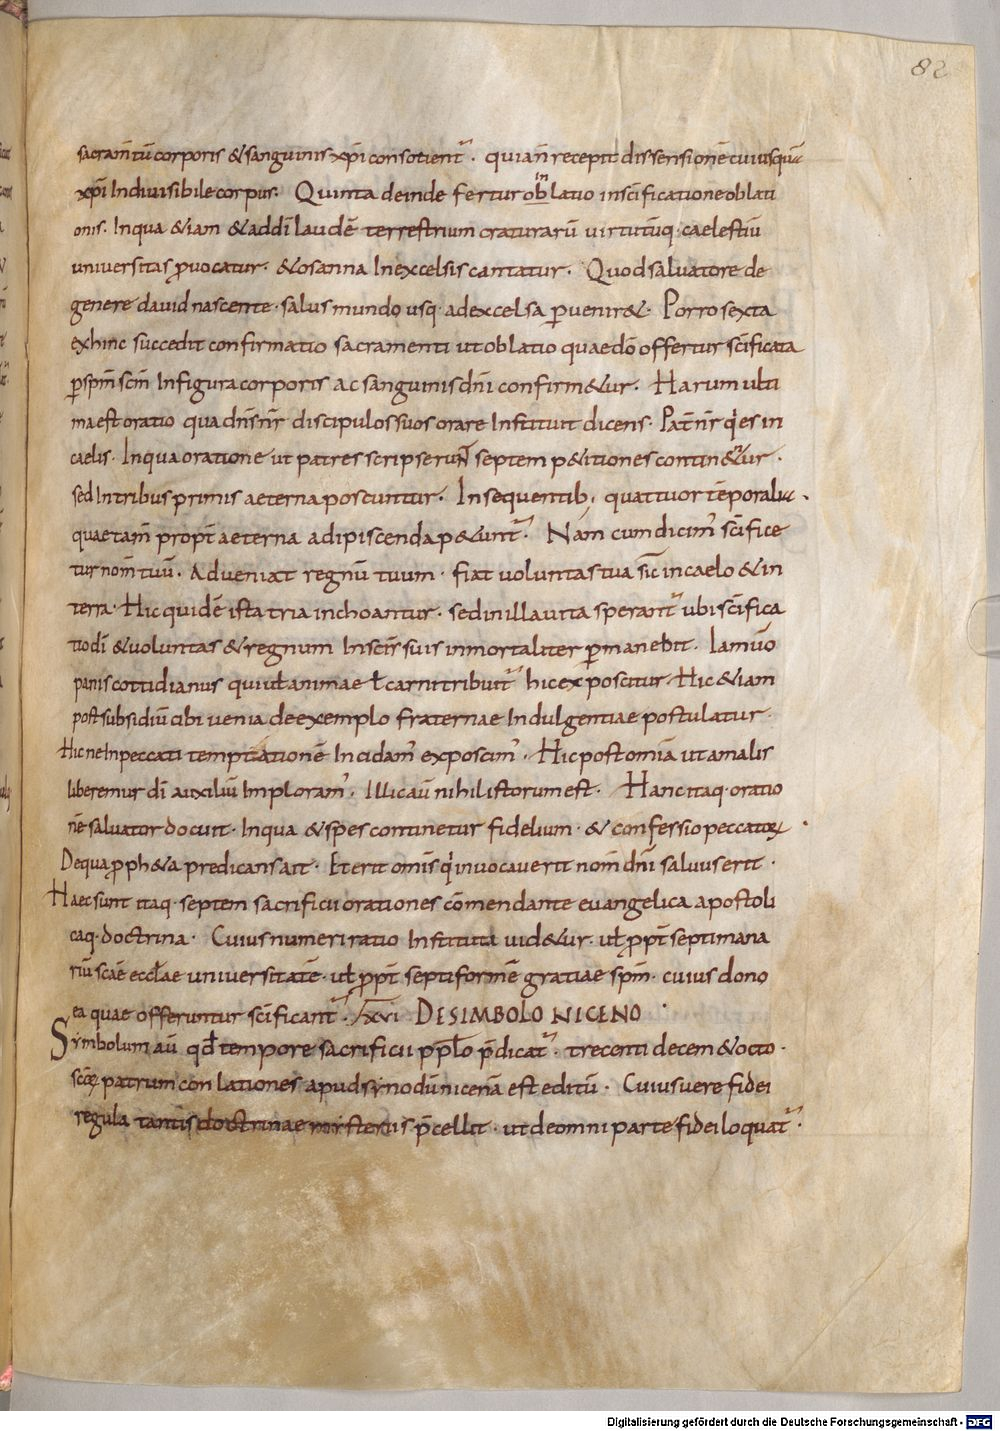 82
sacram̄tū corporis & sanguinis xp̄i consotient᷑ · quia n̄ recepit dissensionē cuiusquā
xp̄i Indivisibile corpus. Quinta deinde fertur ob in latio in scīficatione oblati
onis. Inqua &iam & ad dī laudē terrestrium craturarū virtutūq· caelestiū
universitas p̄vocatur. & osanna In excelsis cantatur. Quod salvatore de
genere david nascente · salus mundo usq· ad excelsa p̄venir&. Porro sexta
exhinc succedit confirmatio sacramenti ut oblatio quae dō offertur scīficata
p̄ sp̄m scm̄ In figura corporis ac sanguinis dn̄i confirm&ur. Harum ulti
ma est oratio qua dn̄s nr̄ discipulos suos orare Instituit dicens. Pat̄ nr̄ qi es in
caelis. Inqua oratione ut patres scripserunt septem p&itiones contin&ur.
sed In tribus primis aeterna poscuntur. In sequentib; quattuor tēporalia.
quae tam̄ propt̄ aeterna adipiscenda p&unt᷑. Nam cum dicim' scīfice
tur nom̄ tuū. Adveniat regnū tuum · fiat voluntas tua sic̄ in caelo & in
terra. Hic quidē ista tria inchoantur. sed in illa vita sperant᷑ ubi scīfica
tio dī & voluntas & regnum In scīs suis inmortaliter p̄manebit. Iam v̄o
panis cottidianus qui vl̄ animae vl̄ carni tribuit᷑ hic exposcitur. Hic &iam
post subsidiū cibi venia de exemplo fraternae Indulgentiae postulatur.
Hic ne In peccati temptationē Incidam' exposcim'. Hic post om̄ia ut a malis
liberemur dī auxiliū Imploram'. Illic aū nihil istorum est. Hanc itaq· oratio
nē salvator docuit. Inqua & spes continetur fidelium · & confessio peccatoꝝ.
De qua p̄ph&a predicans ait. Et erit omīs qi invocaverit nom̄ dn̄i salvus erit.
Haec sunt itaq· septem sacrificii orationes cōmendante evangelica apostoli
caq· doctrina. Cuius numeri ratio Instituta vid&ur. vl̄ ppt̄ septimana
riū scāe eccl̄ae universitatē. vl̄ ppt̄ septiformē gratiae sp̄m. cuius dono
ea quae offeruntur scīficant᷑. lxxvi DE SIMBOLO NICENO.
Symbolum aū qd̄ tempore sacrificii p̄pl̄o p̄dicat᷑. trecenti decem & octo.
scōꝝ patrum conlationes apud synodū nicenā est editū. Cuius vere fidei
regula tantis doctrinae mysteriis p̄cellit. ut de omni parte fidei loquat᷑.
Digitalisierung gefördert durch die Deutsche Forschungsgemeinschaft - DFG